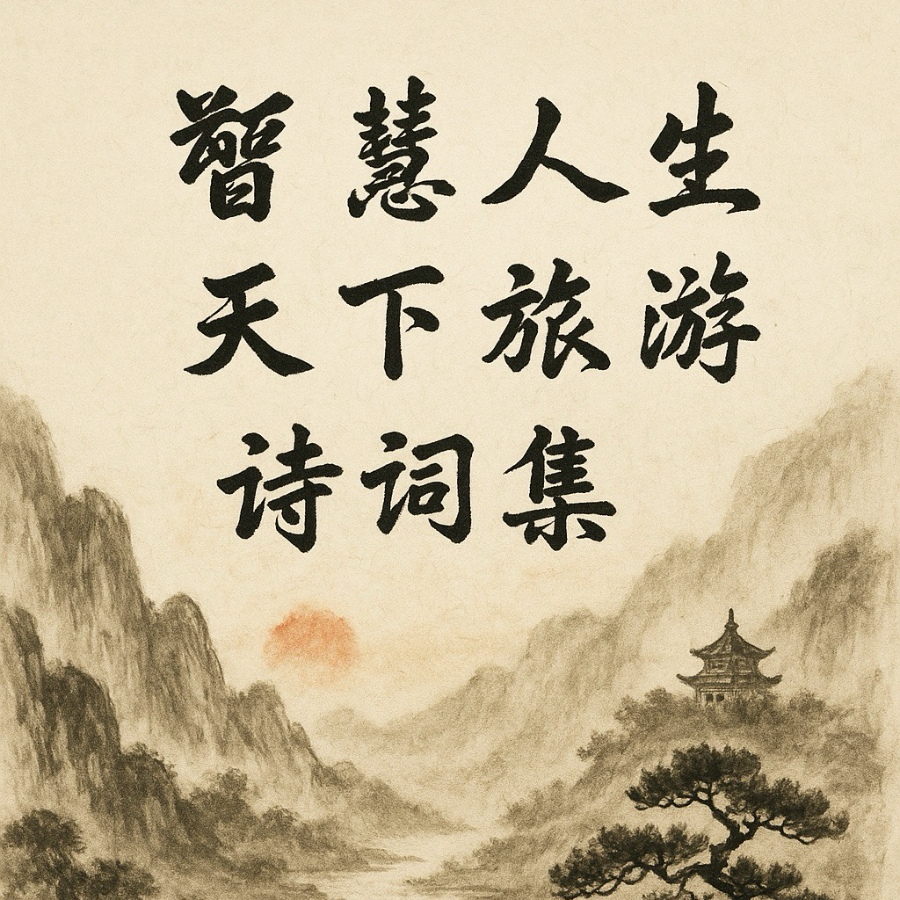 智慧人生
天下旅游
诗词集